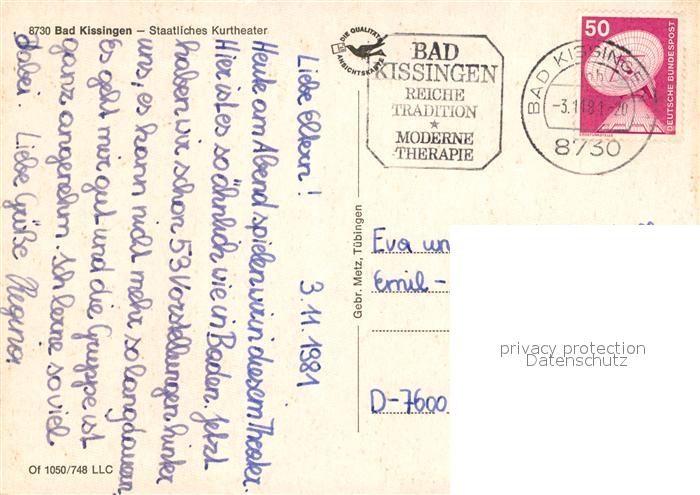 8730 Bad Kissingen – Staatliches Kurtheater
DIE QUALITÄTS
ANSICHTSKARTE
BAD
KISSINGEN
REICHE
TRADITION
★
MODERNE
THERAPIE
BAD KISSINGEN
-3.11.81-20
8730
50
DEUTSCHE BUNDESPOST
ERDFUNKSTELLE
Liebe Eltern! 3.11.1981
Heute am Abend spielen wir in diesem Theater.
Hier ist es so ähnlich wie in Baden. Jetzt
haben wir schon 53 Vorstellungen hinter
uns, es kann nicht mehr so lang dauern.
Es geht mir gut und die Gruppe ist
ganz angenehm. Ich lerne so viel
dabei. Liebe Grüße Regina
Gebr. Metz, Tübingen
Eva un
Emil-
D-7600
privacy protection
Datenschutz
Of 1050/748 LLC